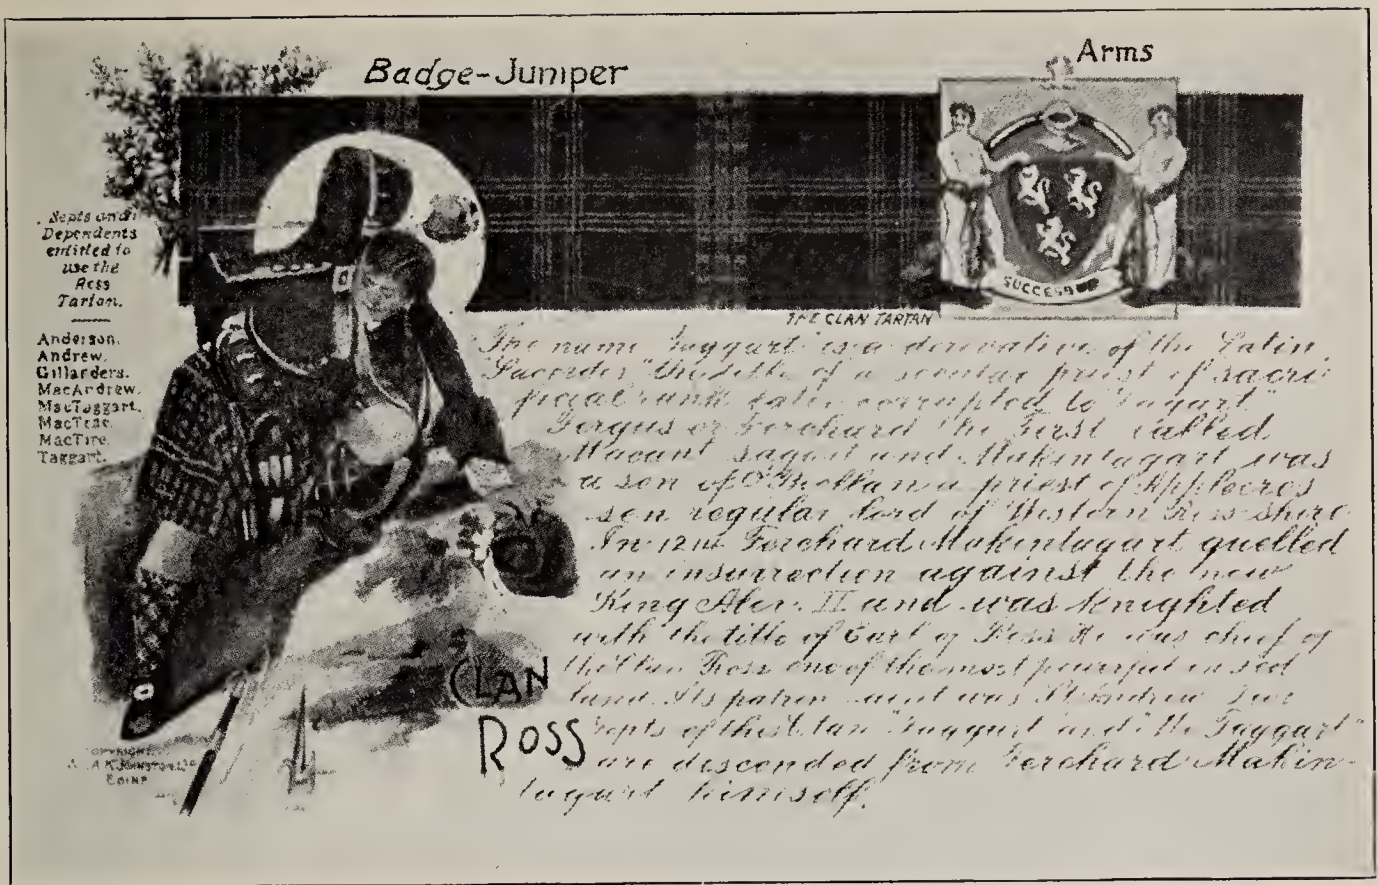 Badge-Juniper
Arms
Septs and
Dependents
entitled to
use the
Ross
Tartan.
Anderson.
Andrew.
Gillanders.
MacAndrew.
MacTaggart.
MacTear.
MacTire.
Taggart.
SUCCESS
THE CLAN TARTAN
The name "Taggart" is a derivative of the Latin
"Sacerdos" the title of a secular priest of sacri-
ficial rank later corrupted to "Tagart"
Fergus or Ferchard the First called
Macant sagart and Makintagart was
a son of O'Beollan a priest of Applecros
son regular lord of Western Ross-shire
In Ferchard Makintagart quelled
an insurrection against the new
King Alex. II and was knighted
with the title of Earl of Ross He was chief of
the Clan Ross one of the most powerful in
land Its patron saint was St Andrew
Septs of this Clan "Taggart" and "Mc Taggart"
are descended from Ferchard Makin-
tagart himself.
CLAN
ROSS
COPYRIGHT
A.K. JOHNSTON LTD
EDINR